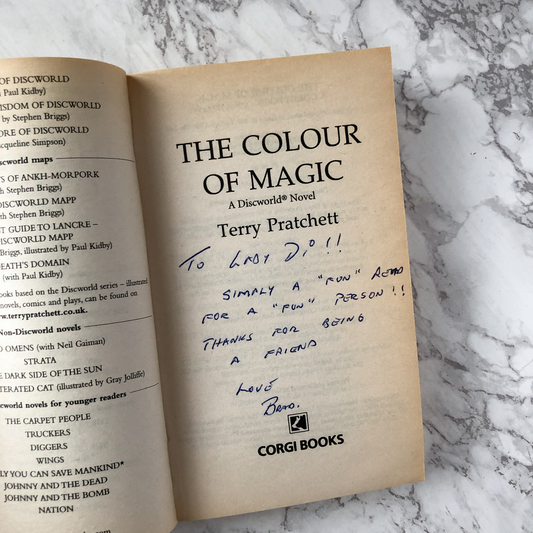 OF DISCWORLD
Paul Kidby)
ISDOM OF DISCWORLD
by Stephen Briggs)
ORE OF DISCWORLD
cqueline Simpson)
scworld maps
S OF ANKH-MORPORK
h Stephen Briggs)
DISCWORLD MAPP
th Stephen Briggs)
ST GUIDE TO LANCRE –
DISCWORLD MAPP
Briggs, illustrated by Paul Kidby)
DEATH'S DOMAIN
(with Paul Kidby)
books based on the Discworld series – illustrated
novels, comics and plays, can be found on
www.terrypratchett.co.uk.
Non-Discworld novels
D OMENS (with Neil Gaiman)
STRATA
E DARK SIDE OF THE SUN
TERATED CAT (illustrated by Gray Jolliffe)
scworld novels for younger readers
THE CARPET PEOPLE
TRUCKERS
DIGGERS
WINGS
LY YOU CAN SAVE MANKIND*
JOHNNY AND THE DEAD
JOHNNY AND THE BOMB
NATION
THE COLOUR
OF MAGIC
A Discworld® Novel
Terry Pratchett
TO LADY DI!!
SIMPLY A "FUN" READ
FOR A "FUN" PERSON!!
THANKS FOR BEING
A FRIEND
LOVE
BRAD.
CORGI BOOKS